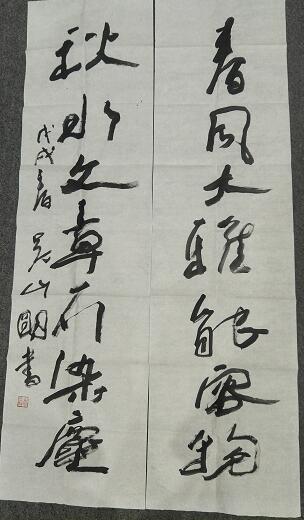 春风大雅能容物
秋水文章不染尘
戊戌春吴山明书